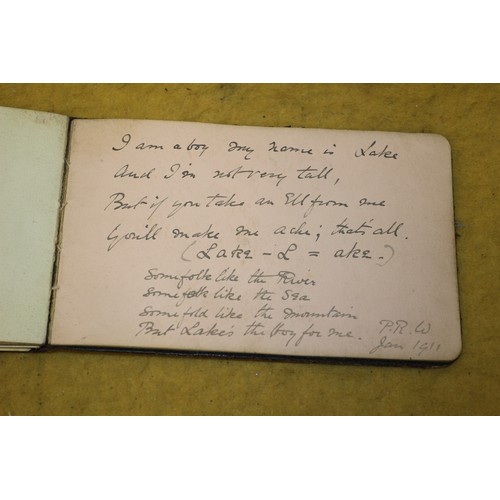 I am a boy my name is Lake
And I'm not very tall,
But if you take an Ell from me
You'll make me ache; that's all.
(Lake - L = ake -)
Some folk like the River
Some folk like the Sea
Some fold like the mountain
But Lake's the boy for me.
P.R.W
Jan 1911